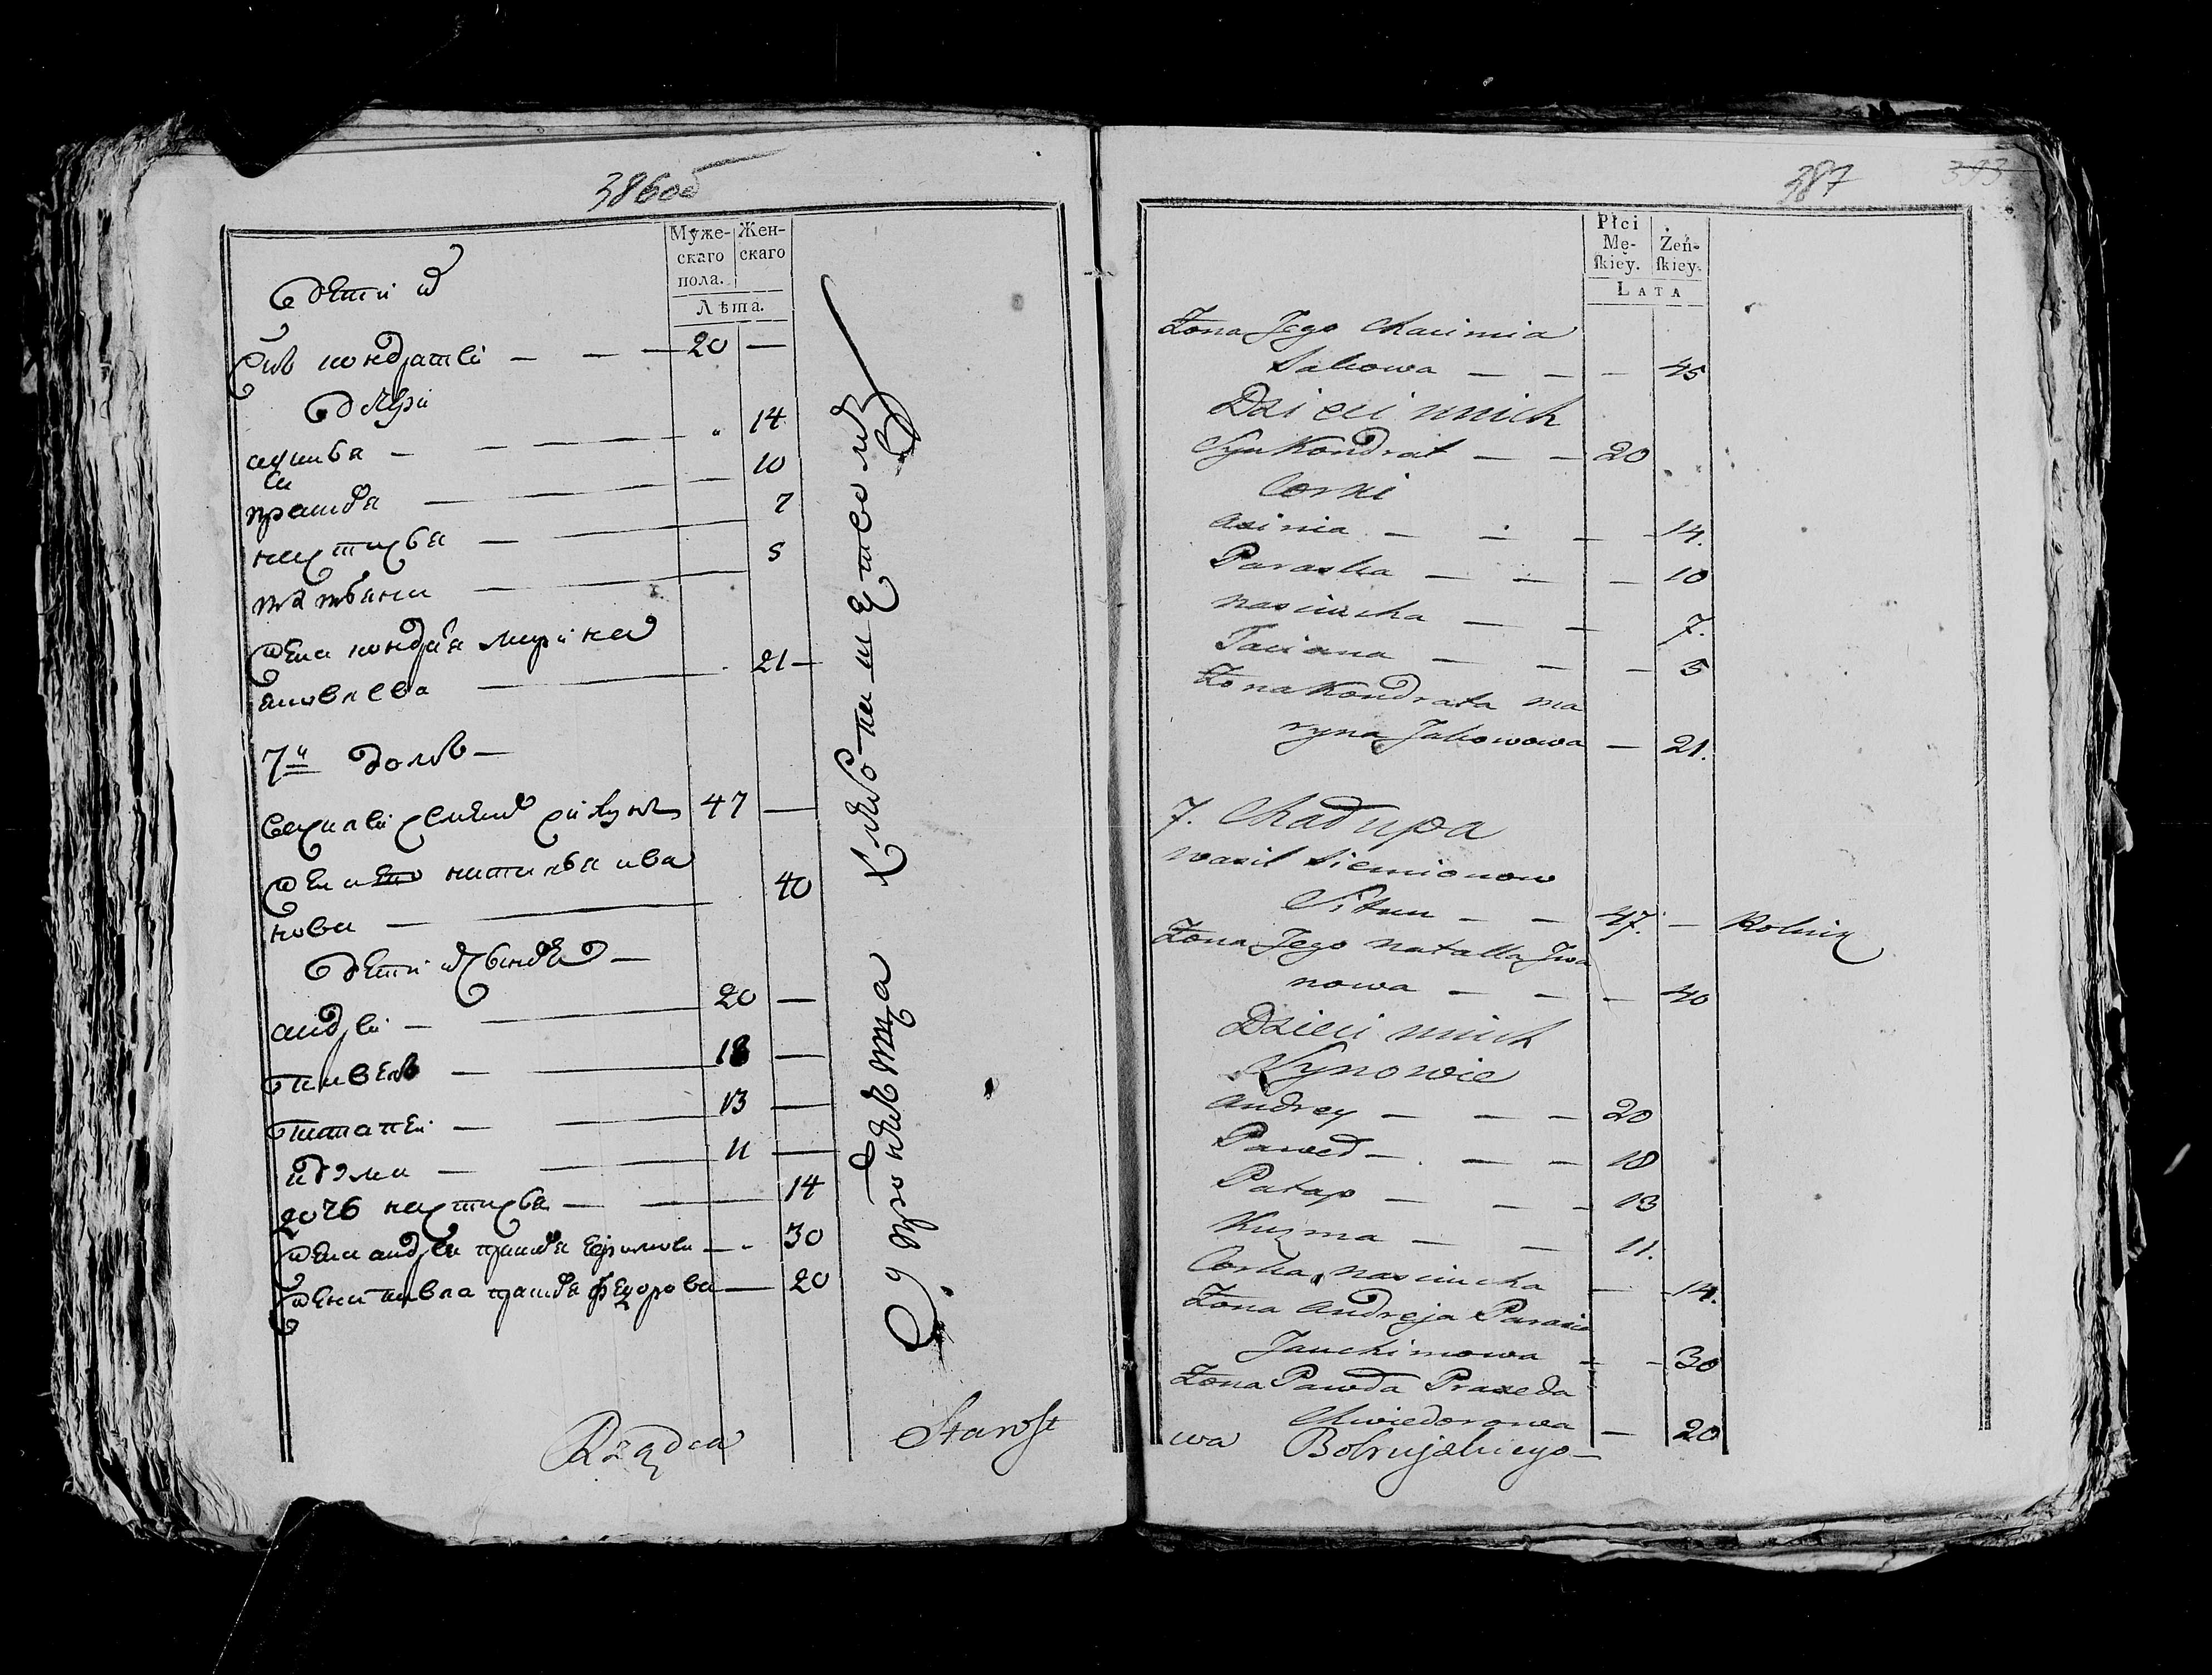 386об
Муже-
скаго
пола.
Жен-
скаго
Лѣта.
дети их
сынъ кондратей — — — 20 —
дочери
14
прасковья — 10
настасья — 7
татьяна — 5
жена кондратья марина
яковлева — 21 —
7й домъ —
василей семенов сикунъ 47 —
жена его наталья ива
нова — 40
дети
андрей — 20 —
павелъ — 18 —
патапей — 13 —
кузма — 11 —
дочь настасья — 14
жена андрея прасковья — 30
жена павла прасковья федорова — 20
Rządca
Starost
387
393
Płci
Mę-
skiey.
Żeń-
skiey.
LATA
Żona Jego
— — — 45
Dzieci u nich
Syn Kondrat — — 20
Corki
axinia — — — 14.
Paraska — — — 10
nasciucha — — 7.
Taciana — — — 5
Żona Kondrata ma
ryna Jakowowa — 21.
7. Chałupa
wasil Siemionow
Sikun — — 47. — Rolnik
Żona Jego natalla Iwa
nowa — — — 40
Dzieci u nich
Synowie
andrey — — — 20
Paweł — — — 18
Patap — — — 13
Kuzma — — 11.
Corka nasciucha — 14.
Żona andreja
Jauchimowa — — 30
Żona Pawła Praxeda
Chwiedorowa — 20
wa Bobrujskiego —